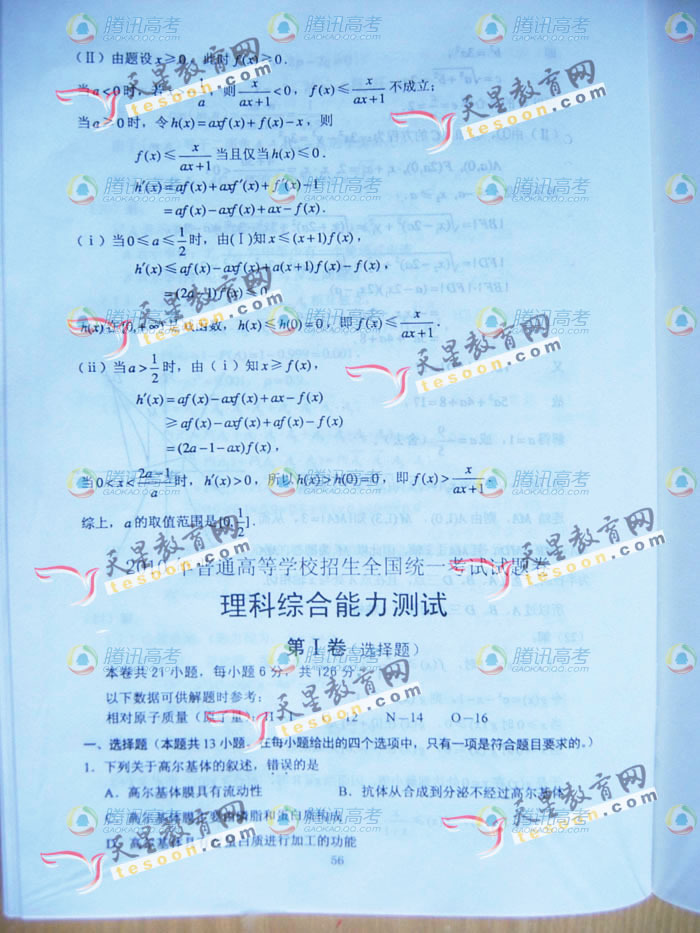 (Ⅱ)由题设x≥0,此时f(x)≥0.
当a<0时,若x>-1/a,则x/(ax+1)<0, f(x)≤x/(ax+1)不成立;
当a≥0时,令h(x)=axf(x)+f(x)-x,则
f(x)≤x/(ax+1)当且仅当h(x)≤0.
h′(x)=af(x)+axf′(x)+f′(x)-1
=af(x)-axf(x)+ax-f(x).
(ⅰ)当0≤a≤1/2时,由(Ⅰ)知x≤(x+1)f(x),
h′(x)≤af(x)-axf(x)+a(x+1)f(x)-f(x),
=(2a-1)f(x)≤0
h(x)在[0,+∞)是减函数,h(x)≤h(0)=0,即f(x)≤x/(ax+1).
(ⅱ)当a>1/2时,由(ⅰ)知x≥f(x),
h′(x)=af(x)-axf(x)+ax-f(x)
≥af(x)-axf(x)+af(x)-f(x)
=(2a-1-ax)f(x),
当0<x<(2a-1)/a时,h′(x)>0,所以h(x)>h(0)=0,即f(x)>x/(ax+1).
综上,a的取值范围是[0,1/2].
2010年普通高等学校招生全国统一考试试题卷
理科综合能力测试
第Ⅰ卷(选择题)
本卷共21小题,每小题6分,共126分
以下数据可供解题时参考:
相对原子质量(原子量):H-1 12 N-14 O-16
一、选择题(本题共13小题,在每小题给出的四个选项中,只有一项是符合题目要求的。)
1. 下列关于高尔基体的叙述,错误的是
A. 高尔基体膜具有流动性 B. 抗体从合成到分泌不经过高尔基体
C. 高尔基体膜主要由磷脂和蛋白质构成
D. 高尔基体 蛋白质进行加工的功能
56
腾讯高考
GAOKAO.QQ.COM
天星教育网
tesoon.com